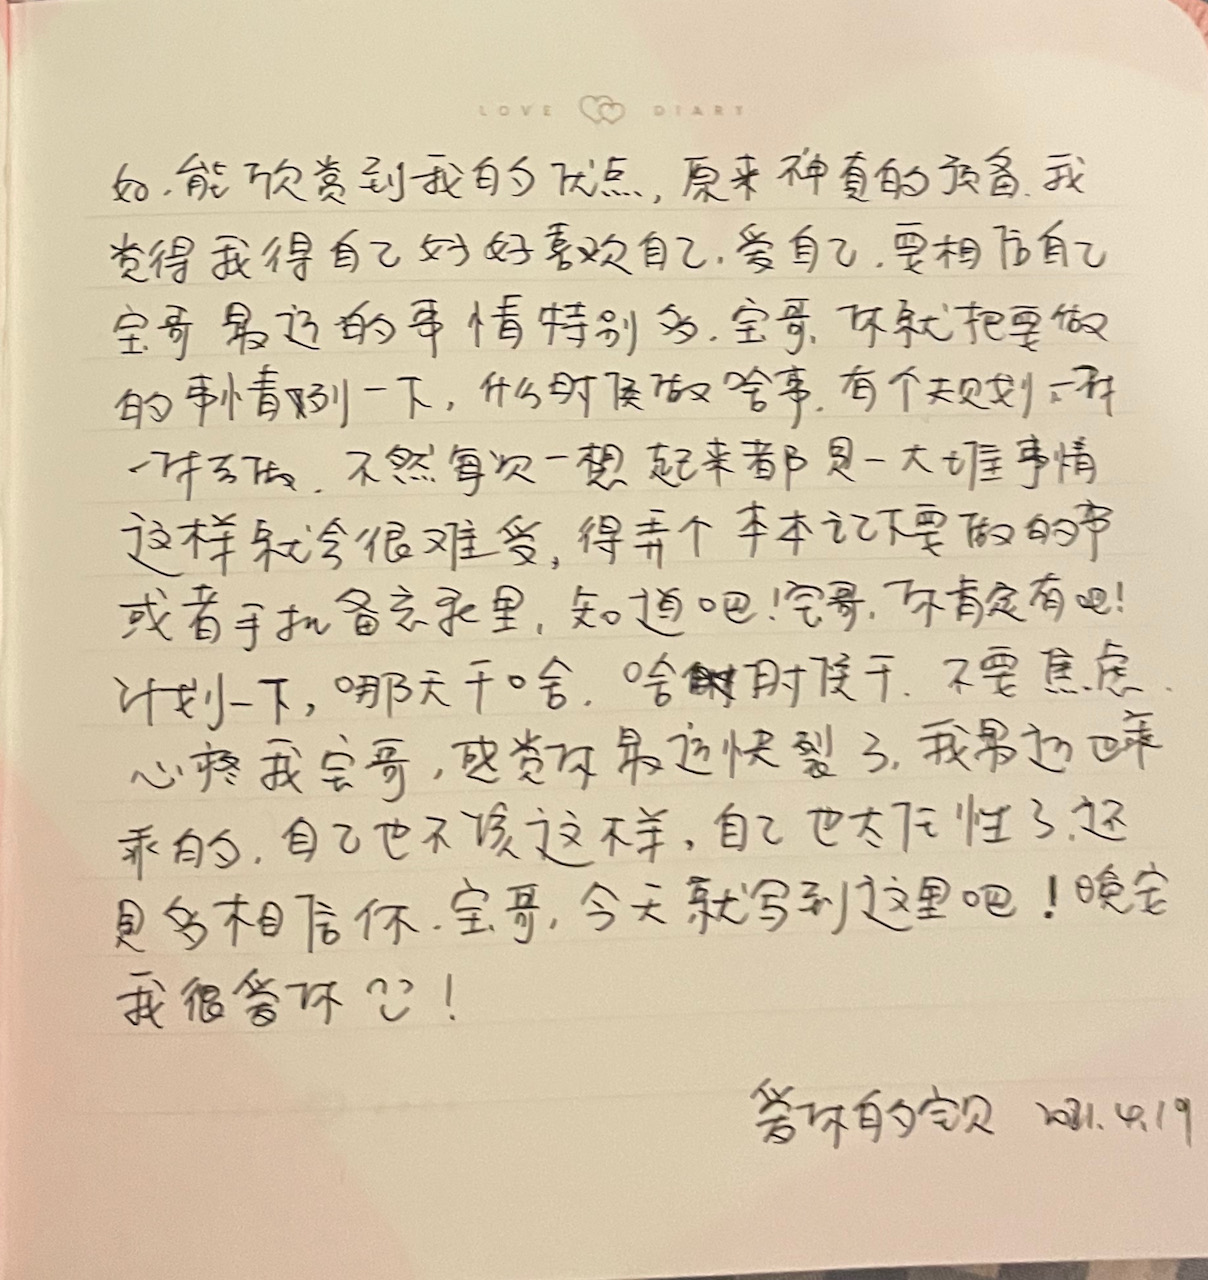 LOVE DIARY
如.能欣赏到我的优点,原来神真的预备.我
觉得我得自己好好喜欢自己.爱自己.要相信自己
宝哥最近的事情特别多.宝哥,你就把要做
的事情列一下,什么时候做啥事.有个规划.一件
一件去做.不然每次一想起来都是一大堆事情
这样就会很难受,得弄个本本记下要做的事
或者手机备忘录里,知道吧!宝哥,你肯定有吧!
计划一下,哪天干啥.啥时候干.不要焦虑.
心疼我宝哥,感觉你最近快裂了,我最近也乖
乖的.自己也不该这样,自己也太任性了.还
是多相信你.宝哥,今天就写到这里吧!晚安
我很爱你!
爱你的宝贝 2021.4.19